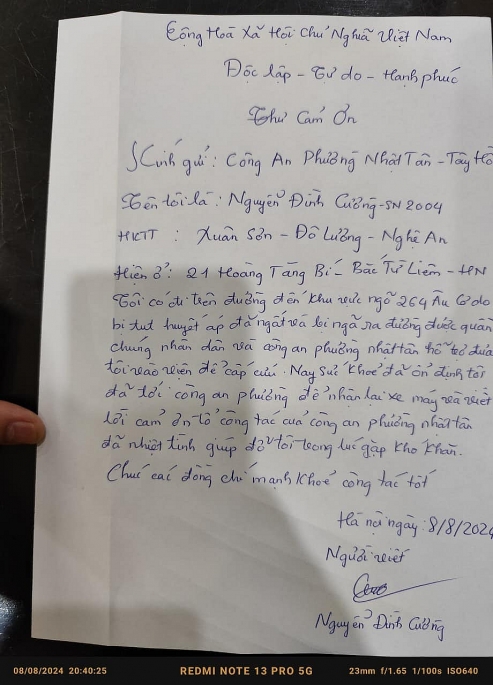 Cộng Hoà Xã Hội Chủ Nghĩa Việt Nam
Độc lập - Tự do - Hạnh phúc
Thư Cảm Ơn
Kính gửi: Công An Phường Nhật Tân - Tây Hồ
Tên tôi là: Nguyễn Đình Cường - SN 2004
HKTT : Xuân Sơn - Đô Lương - Nghệ An
Hiện ở: 21 Hoàng Tăng Bí - Bắc Từ Liêm - HN
Tôi có đi trên đường đến khu vực ngõ 264 Âu Cơ do
bị tụt huyết áp đã ngất và bị ngã ra đường được quần
chúng nhân dân và công an phường nhật tân hỗ trợ đưa
tôi vào viện để cấp cứu. Nay sức khoẻ đã ổn định tôi
đã tới công an phường để nhận lại xe máy và viết
lời cảm ơn tổ công tác của công an phường nhật tân
đã nhiệt tình giúp đỡ tôi trong lúc gặp khó khăn.
Chúc các đồng chí mạnh khoẻ công tác tốt
Hà nội ngày: 8/8/2024
Người viết
Nguyễn Đình Cường
08/08/2024 20:40:25 REDMI NOTE 13 PRO 5G 23mm f/1.65 1/100s ISO640